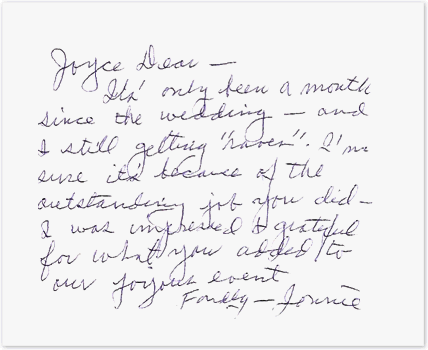 Joyce Dear —
Its' only been a month
since the wedding — and
I still getting "raves". I'm
sure it's because of the
outstanding job you did —
I was impressed & grateful
for what you added to
our joyous event
Fondly — Jonnie